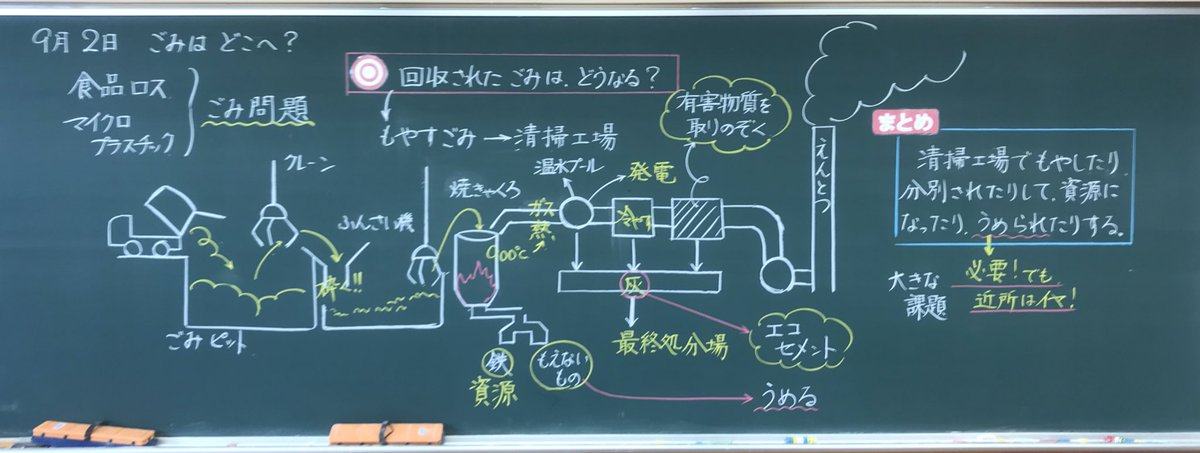 9月2日 ごみは どこへ?
食品ロス
マイクロ
プラスチック
ごみ問題
回収された ごみは、どうなる?
もやすごみ→清掃工場
有害物質を
取りのぞく
クレーン
ふんさい機
焼きゃくろ
温水プール
発電
ガス
熱
900℃
冷やす
えんとつ
砕く!!
ごみピット
灰
最終処分場
エコ
セメント
鉄
資源
もえない
もの
うめる
まとめ
清掃工場でもやしたり、
分別されたりして、資源に
なったり、うめられたりする。
大きな
課題
必要!でも
近所はイヤ!